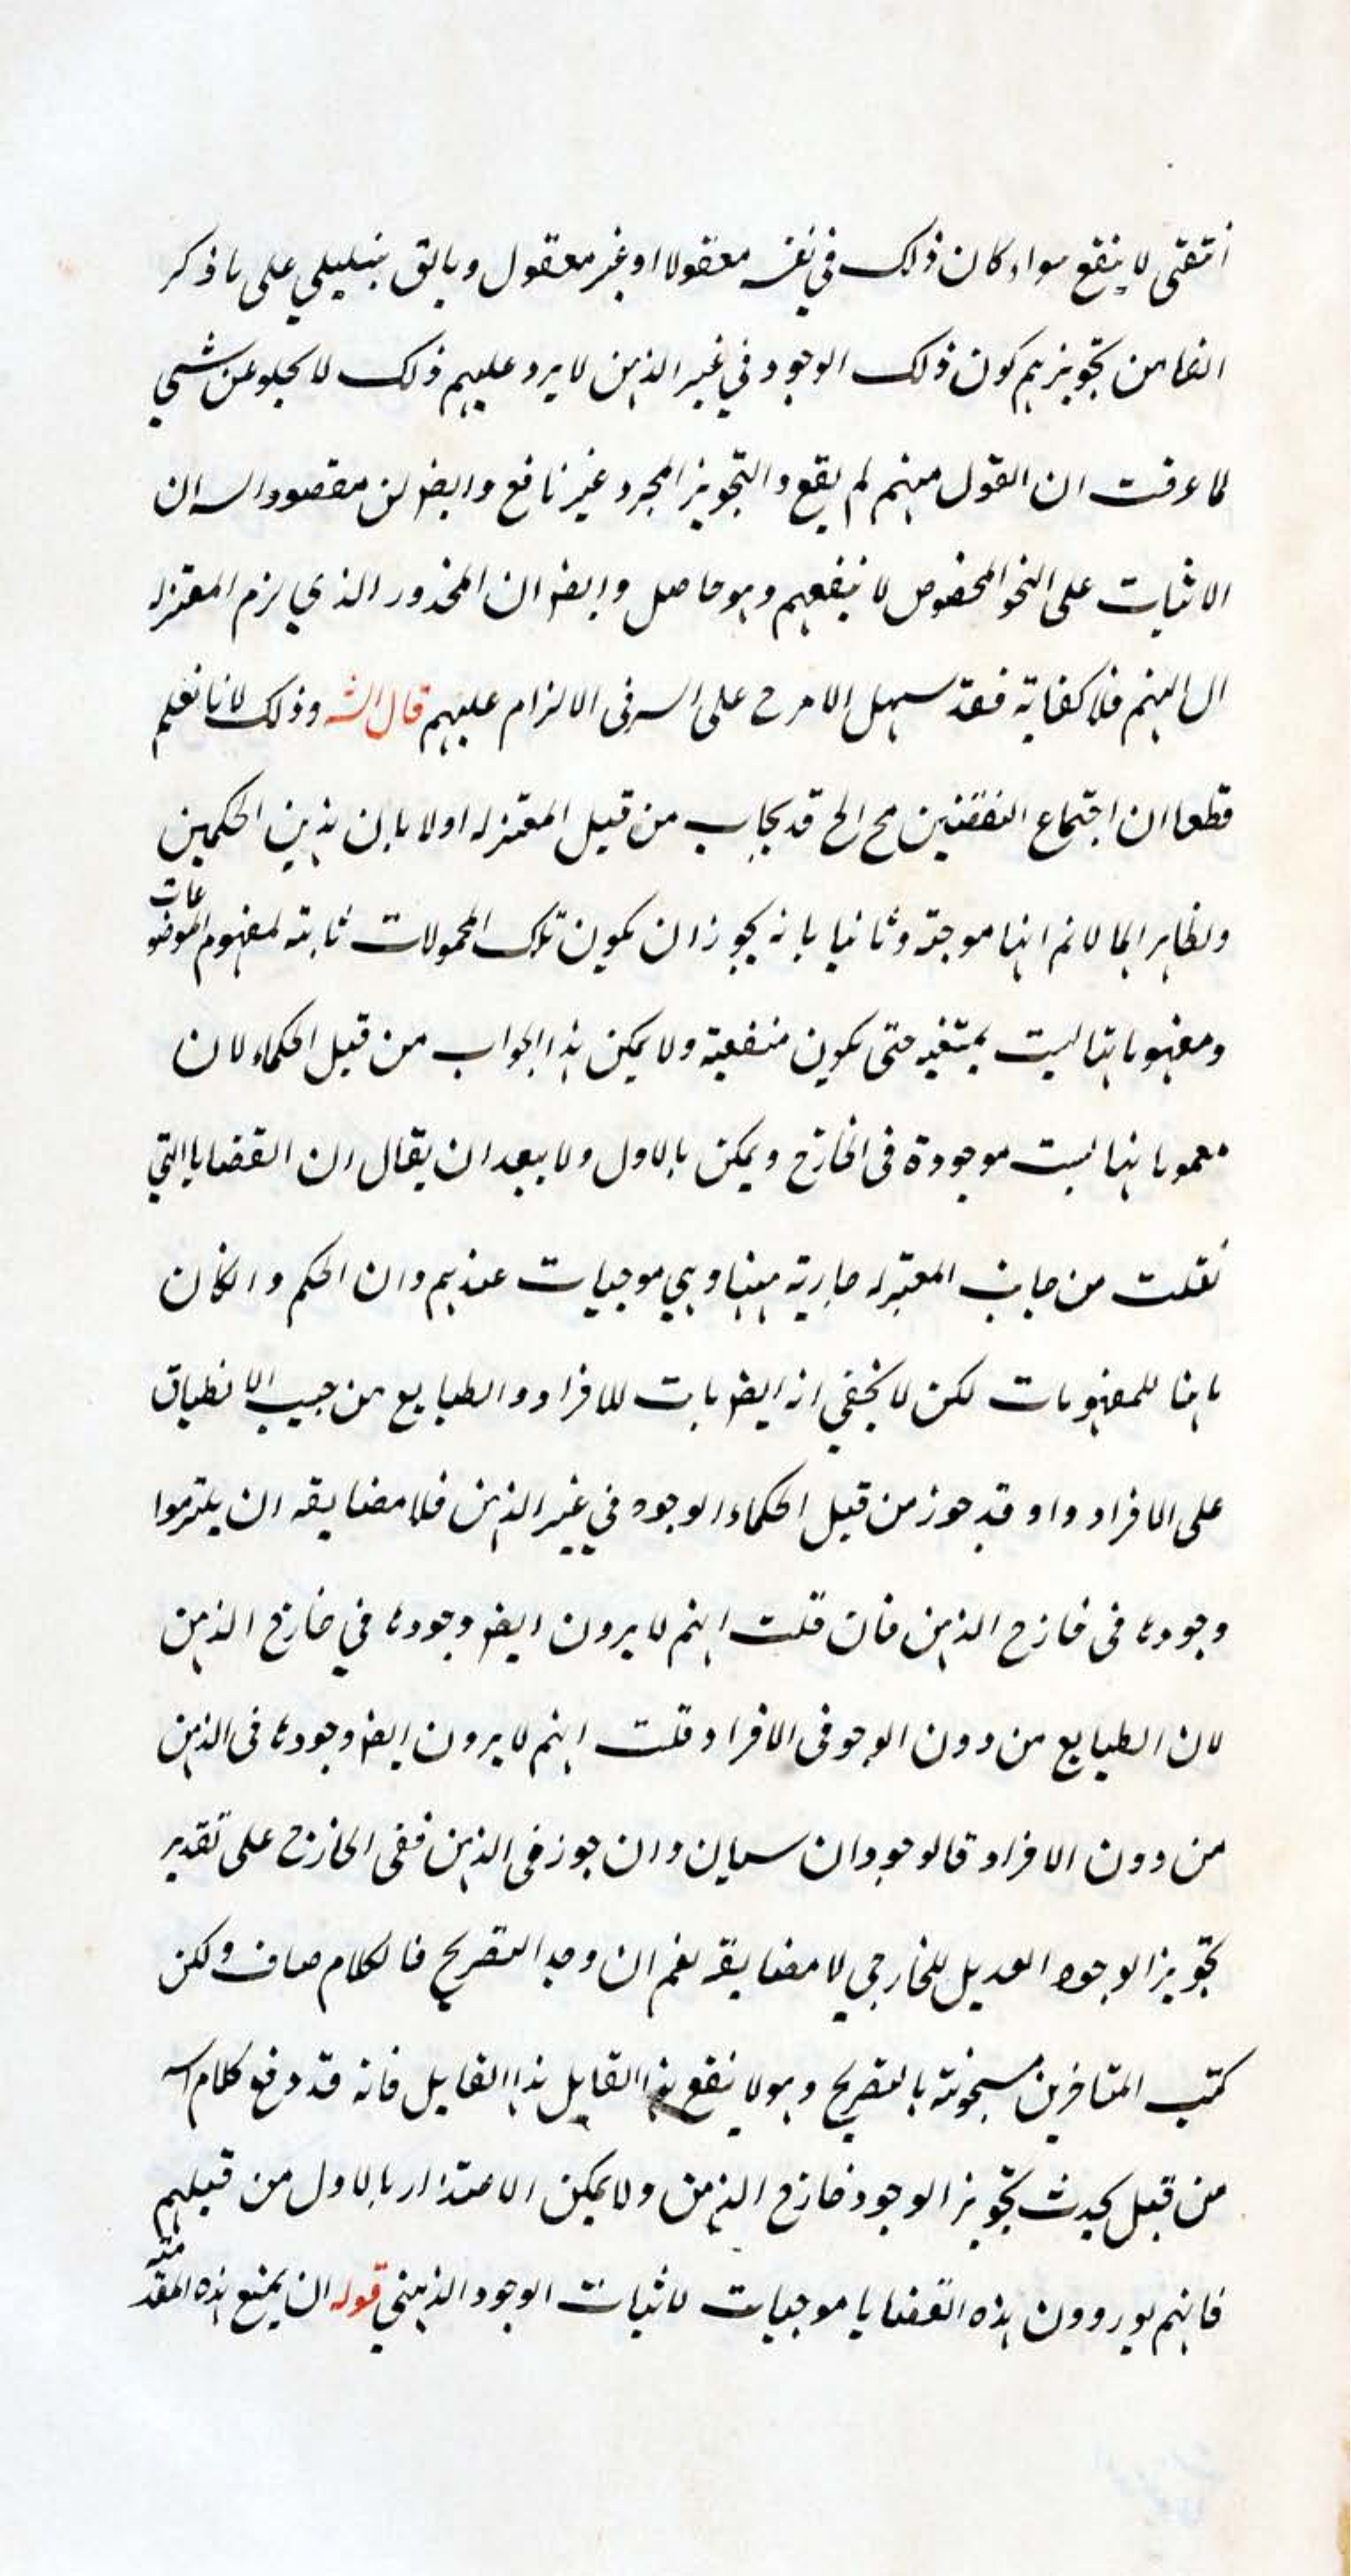 لا ينفع سواء كان ذلك في نفسه معقولا او غير معقول وما يق على ما ذكر
انفا من تجويزهم كون ذلك الوجود في غير الذهن لا يرد عليهم ذلك لا يخلو عن شيء
لما عرفت ان القول منهم لم يقع والتجويز المجرد غير نافع وايضا لن مقصود السه ان
الاثبات على النحو المخصوص لا ينفعهم وهو حاصل وايضا ان المحذور الذي لزم المعتزله
ال اليهم فلا كفاية فقد سهل الامر ح على السه في الالزام عليهم قال الشه وذلك لانا نعلم
قطعا ان اجتماع النقيضين مح الخ قد يجاب من قبل المعتزله اولا بان هذين الحكمين
ونظايرهما لا نم انها موجبة وثانيا بانه يجوز ان يكون تلك المحمولات ثابتة لمفهوم الموضوعات
ومفهوماتها ليست بمنتفيه حتى يكون منفعية ولا يمكن هذا الجواب من قبل الحكماء لان
مفهوماتها ليست موجودة في الخارج ويمكن بالاول ولا يبعد ان يقال ان القضايا التي
نقلت من جانب المعتزله جارية هنا وهي موجبات عندهم وان الحكم وان كان
ثابتا للمفهومات لكن لا يخفى انه ايضا ثابت للافراد والطبايع من حيث الانطباق
على الافراد واو قد جوز من قبل الحكماء الوجود في غير الذهن فلا مضايقه ان يلتزموا
وجودها في خارج الذهن فان قلت انهم لا يرون ايضا وجودها في خارج الذهن
لان الطبايع من دون الوجو في الافراد قلت انهم لا يرون ايضا وجودها في الذهن
من دون الافراد فالوجودان سيان وان جوز في الذهن ففي الخارج على تقدير
تجويز الوجود العديل للخارجي لا مضايقه نعم ان وجد التصريح فالكلام صاف ولكن
كتب المتاخرين مشحونة بالتصريح وهو لا ينفع هذا القايل هذا القايل فانه قد دفع كلام السه
من قبل بحديث تجويز الوجود خارج الذهن ولا يمكن الاعتذار بالاول من قبلهم
فانهم يوردون هذه القضايا موجبات لاثبات الوجود الذهني قوله ان يمنع هذه المقدمة